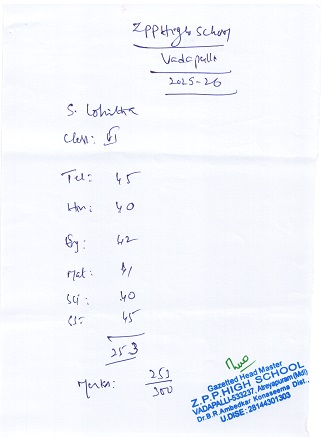 ZPP High School
Vadapalli
2025-26
S. Lohitha
Class: VI
Tel: 45
Hin: 40
Eng: 42
Mat: 41
Sci: 40
SS: 45
253
Marks: 253
300
Gazetted Head Master
Z.P.P.HIGH SCHOOL
VADAPALLI-533237, Atreyapuram (Mdl)
Dr.B.R Ambedker Konaseema Dist.,
U.DISE: 28144301303